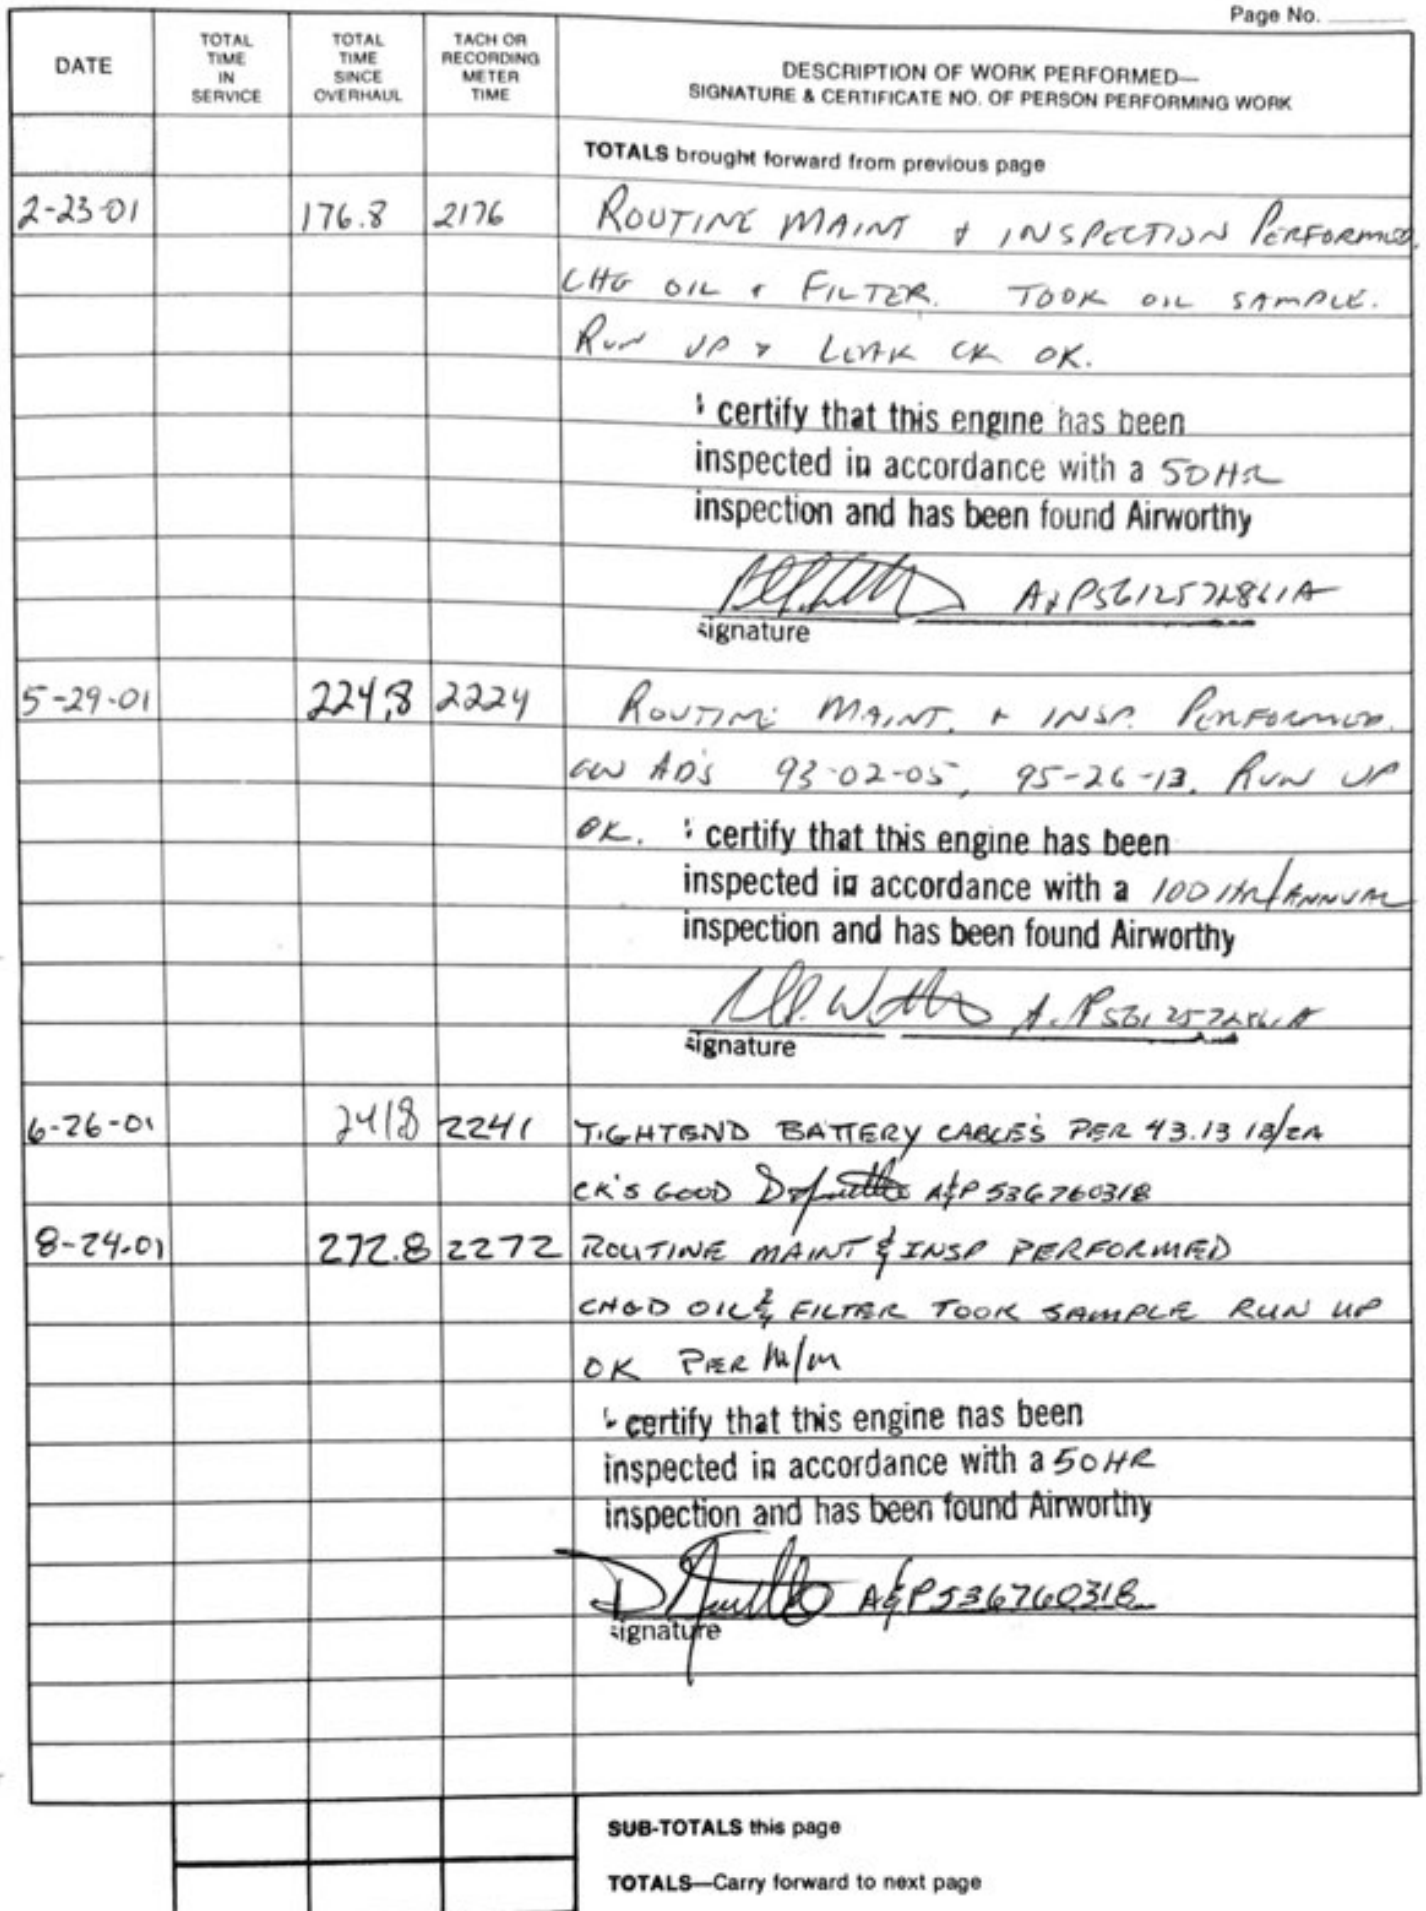 Page No.
DATE
TOTAL TIME IN SERVICE
TOTAL TIME SINCE OVERHAUL
TACH OR RECORDING METER TIME
DESCRIPTION OF WORK PERFORMED—
SIGNATURE & CERTIFICATE NO. OF PERSON PERFORMING WORK
TOTALS brought forward from previous page
2-23-01 176.8 2176 ROUTINE MAINT & INSPECTION PERFORMED.
CHG OIL & FILTER. TOOK OIL SAMPLE.
RUN UP & LEAK CK OK.
I certify that this engine has been
inspected in accordance with a 50 HR
inspection and has been found Airworthy
A&P561257286IA
signature
5-29-01 224.8 2224 ROUTINE MAINT. & INSP. PERFORMED.
CW AD'S 93-02-05, 95-26-13. RUN UP
OK. I certify that this engine has been
inspected in accordance with a 100 HR/ANNUAL
inspection and has been found Airworthy
A&P561257286IA
signature
6-26-01 2418 2241 TIGHTEND BATTERY CABLE'S PER 43.13 1B/2A
CK'S GOOD A&P 536760318
8-24-01 272.8 2272 ROUTINE MAINT & INSP PERFORMED
CHGD OIL & FILTER TOOK SAMPLE RUN UP
OK PER M/M
I certify that this engine has been
inspected in accordance with a 50 HR
inspection and has been found Airworthy
A&P536760318
signature
SUB-TOTALS this page
TOTALS—Carry forward to next page